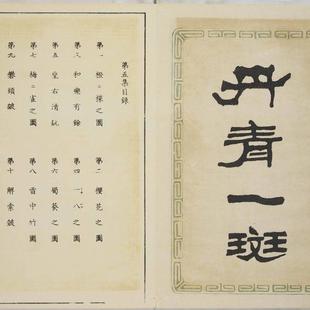 丹青一斑
第五集目錄
第一 橙ニ之圖
第二 櫻花之圖
第三 和樂有餘
第四 一八之圖
第五 右清玩
第六 蜀葵之圖
第七 梅ニ雀之圖
第八 雪中竹圖
第九 礬頭皴
第十 解索皴